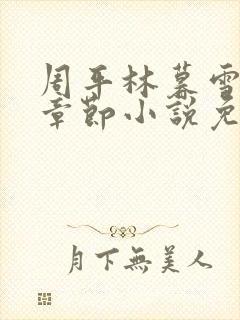 周平林暮雪
章節小說免
月下無美人